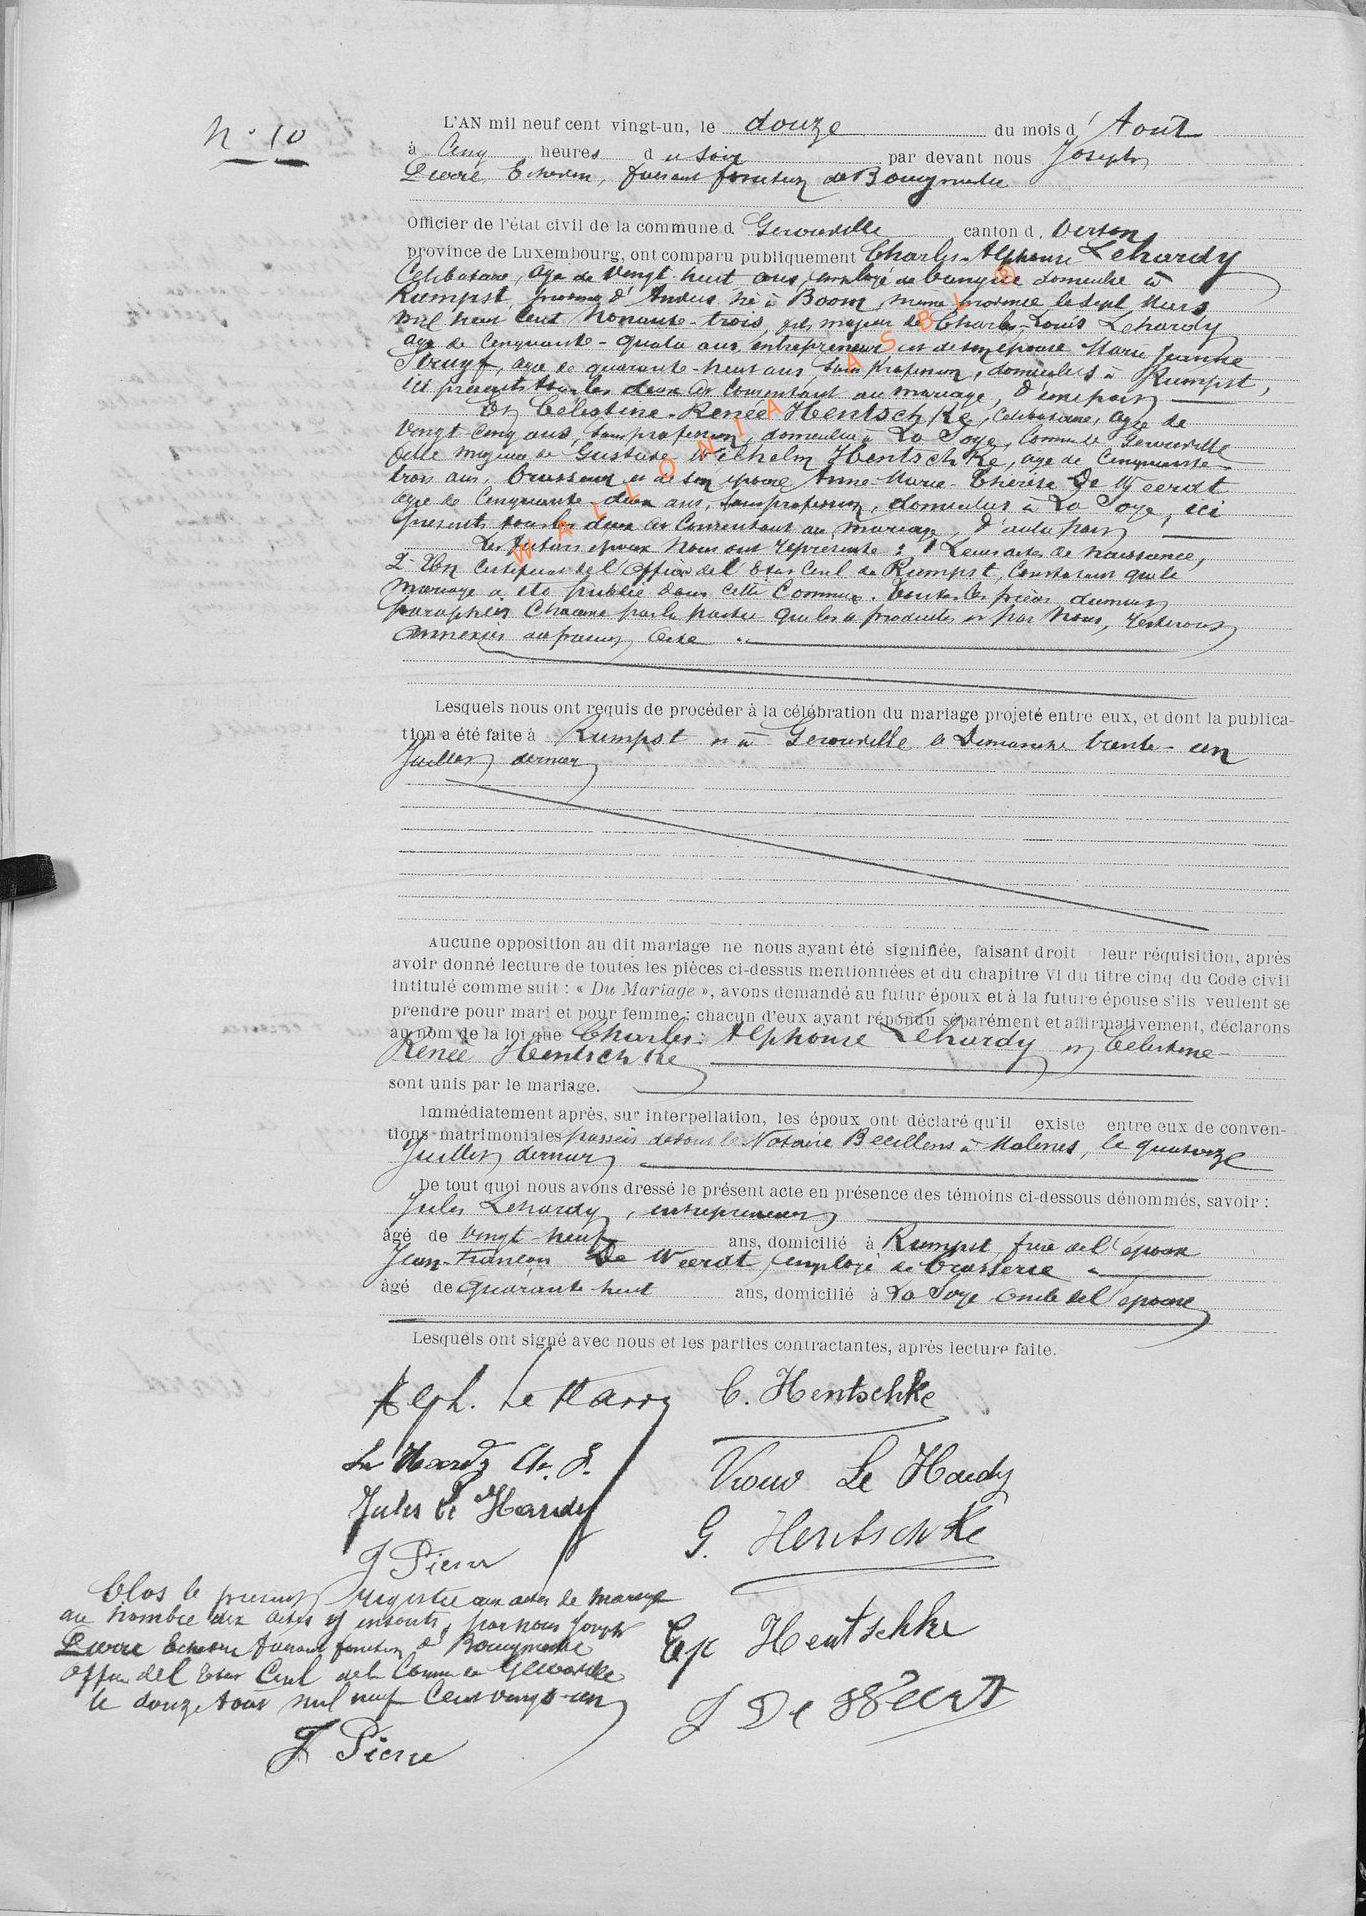 N° 10
L'AN mil neuf cent vingt-un, le douze du mois d' Août
à Cinq heures du soir par devant nous Joseph
Pierre, Echevin, faisant fonction de Bourgmestre
Officier de l'état civil de la commune d Gerouville canton d. Virton
province de Luxembourg, ont comparu publiquement Charles-Alphonse Lehardy
Célibataire, âgé de vingt-huit ans, employé de banque domicilié à
Rumpst, province d'Anvers né à Boom, même province le sept Mars
mil neuf cent nonante-trois, fils majeur de Charles-Louis Lehardy
âgé de cinquante-quatre ans, entrepreneur et de son épouse Marie Jeanne
Struyf, âgée de quarante-neuf ans, sans profession, domiciliés à Rumpst,
ici présents tous les deux et consentant au mariage, d'une part
Et Célestine-Renée Hentschke, Célibataire, âgée de
vingt-cinq ans, sans profession, domiciliée à La Soye, Commune Gerouville
fille majeure de Gustave Wilhelm Hentschke, âgé de cinquante-
trois ans, brasseur et de son épouse Anne-Marie-Thérèse De Weerdt
âgée de cinquante deux ans, sans profession, domiciliés à La Soye, ici
présents tous les deux et consentant au mariage, d'autre part
Les futurs époux nous ont représenté : 1° Leurs actes de naissance,
2° Un certificat de l'officier de l'Etat Civil de Rumpst, constatant que le
mariage a été publié dans cette commune. Toutes les pièces dument
paraphées chacune par la partie qui les a produites et par nous, resteront
annexées au présent acte
Lesquels nous ont requis de procéder à la célébration du mariage projeté entre eux, et dont la publica-
tion a été faite à Rumpst et à Gerouville le Dimanche trente-un
Juillet dernier
Aucune opposition au dit mariage ne nous ayant été signifiée, faisant droit leur réquisition, après
avoir donné lecture de toutes les pièces ci-dessus mentionnées et du chapitre VI du titre cinq du Code civil
intitulé comme suit : « Du Mariage », avons demandé au futur époux et à la future épouse s'ils veulent se
prendre pour mari et pour femme ; chacun d'eux ayant répondu séparément et affirmativement, déclarons
au nom de la loi que Charles-Alphonse Lehardy et Célestine-
Renée Hentschke
sont unis par le mariage.
Immédiatement après, sur interpellation, les époux ont déclaré qu'il existe entre eux de conven-
tions matrimoniales passées devant le Notaire à Malines, le quatorze
Juillet dernier
De tout quoi nous avons dressé le présent acte en présence des témoins ci-dessous dénommés, savoir :
Jules Lehardy, entrepreneur
âgé de vingt-neuf ans, domicilié à Rumpst, frère de l'époux
Jean-François De Weerdt, employé de brasserie
âgé de quarante huit ans, domicilié à La Soye oncle de l'épouse
Lesquels ont signé avec nous et les parties contractantes, après lecture faite.
Alph. Le Hardy C. Hentschke
Le Hardy Ch. L. Vrouw Le Hardy
Jules Le Hardy G. Hentschke
J Pierre
Clos le présent registre aux actes de mariage
au nombre dix actes y inscrits, par nous Joseph
Pierre Echevin faisant fonction de Bourgmestre
Officier de l'Etat Civil de la Commune Gerouville
le douze Août mil neuf cent vingt-un
Ep Hentschke
J De Weert
J Pierre
WALLONIA ASBL ®